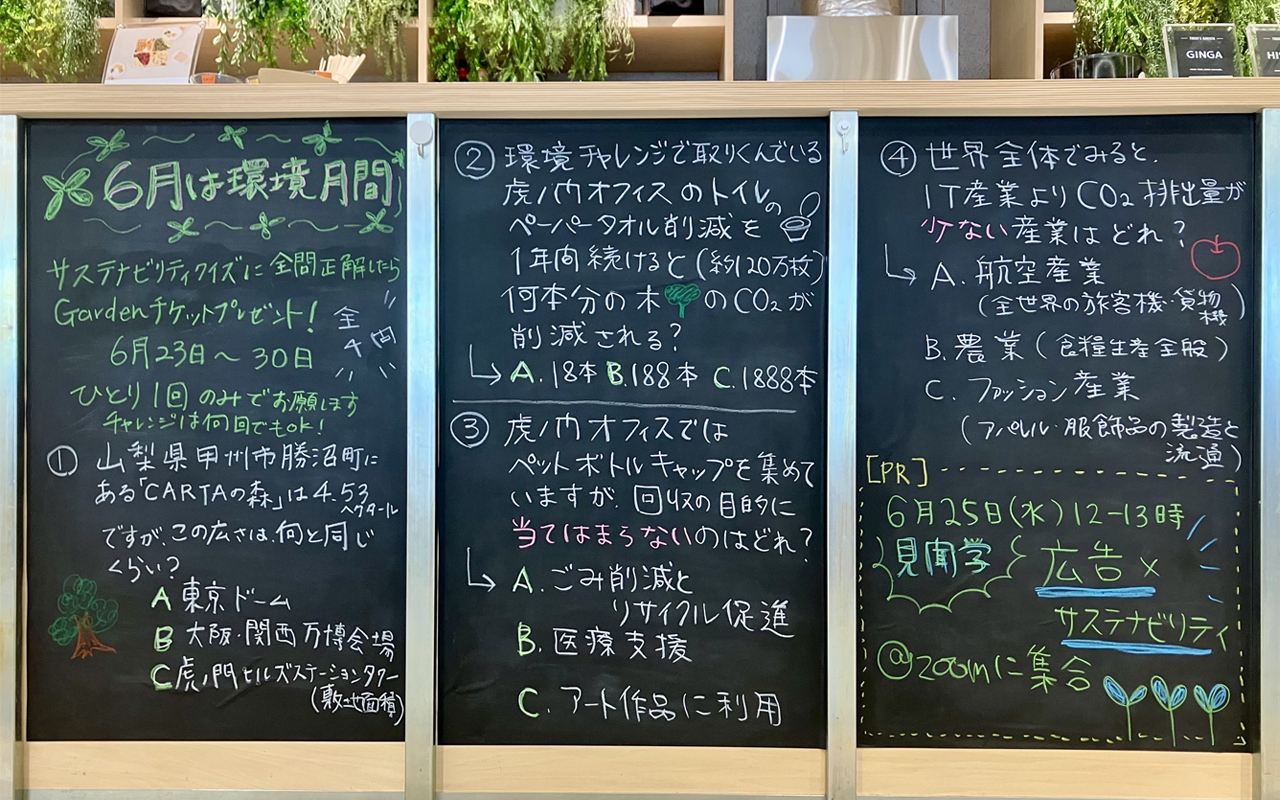 GINGA
6月は環境月間
サステナビリティクイズに全問正解したら
Gardenチケットプレゼント!
全4問
6月23日〜30日
ひとり1回のみでお願いします
チャレンジは何回でもOK!
① 山梨県甲州市勝沼町に
ある「CARTAの森」は4.53
ヘクタール
ですが、この広さは、何と同じ
くらい?
A 東京ドーム
B 大阪・関西万博会場
C 虎ノ門ヒルズステーションタワー
(敷地面積)
② 環境チャレンジで取りくんでいる
虎ノ門オフィスのトイレの
ペーパータオル削減を
1年間続けると(約120万枚)
何本分の木のCO2が
削減される?
A.18本 B.188本 C.1888本
③ 虎ノ門オフィスでは
ペットボトルキャップを集めて
いますが、回収の目的に
当てはまらないのはどれ?
A.ごみ削減と
リサイクル促進
B.医療支援
C.アート作品に利用
④ 世界全体でみると、
IT産業よりCO2排出量が
少ない産業はどれ?
A.航空産業
(全世界の旅客機・貨物機)
B.農業(食糧生産全般)
C.ファッション産業
(アパレル・服飾品の製造と
流通)
[PR]
6月25日(水)12-13時
見聞学 広告×
サステナビリティ
@zoomに集合